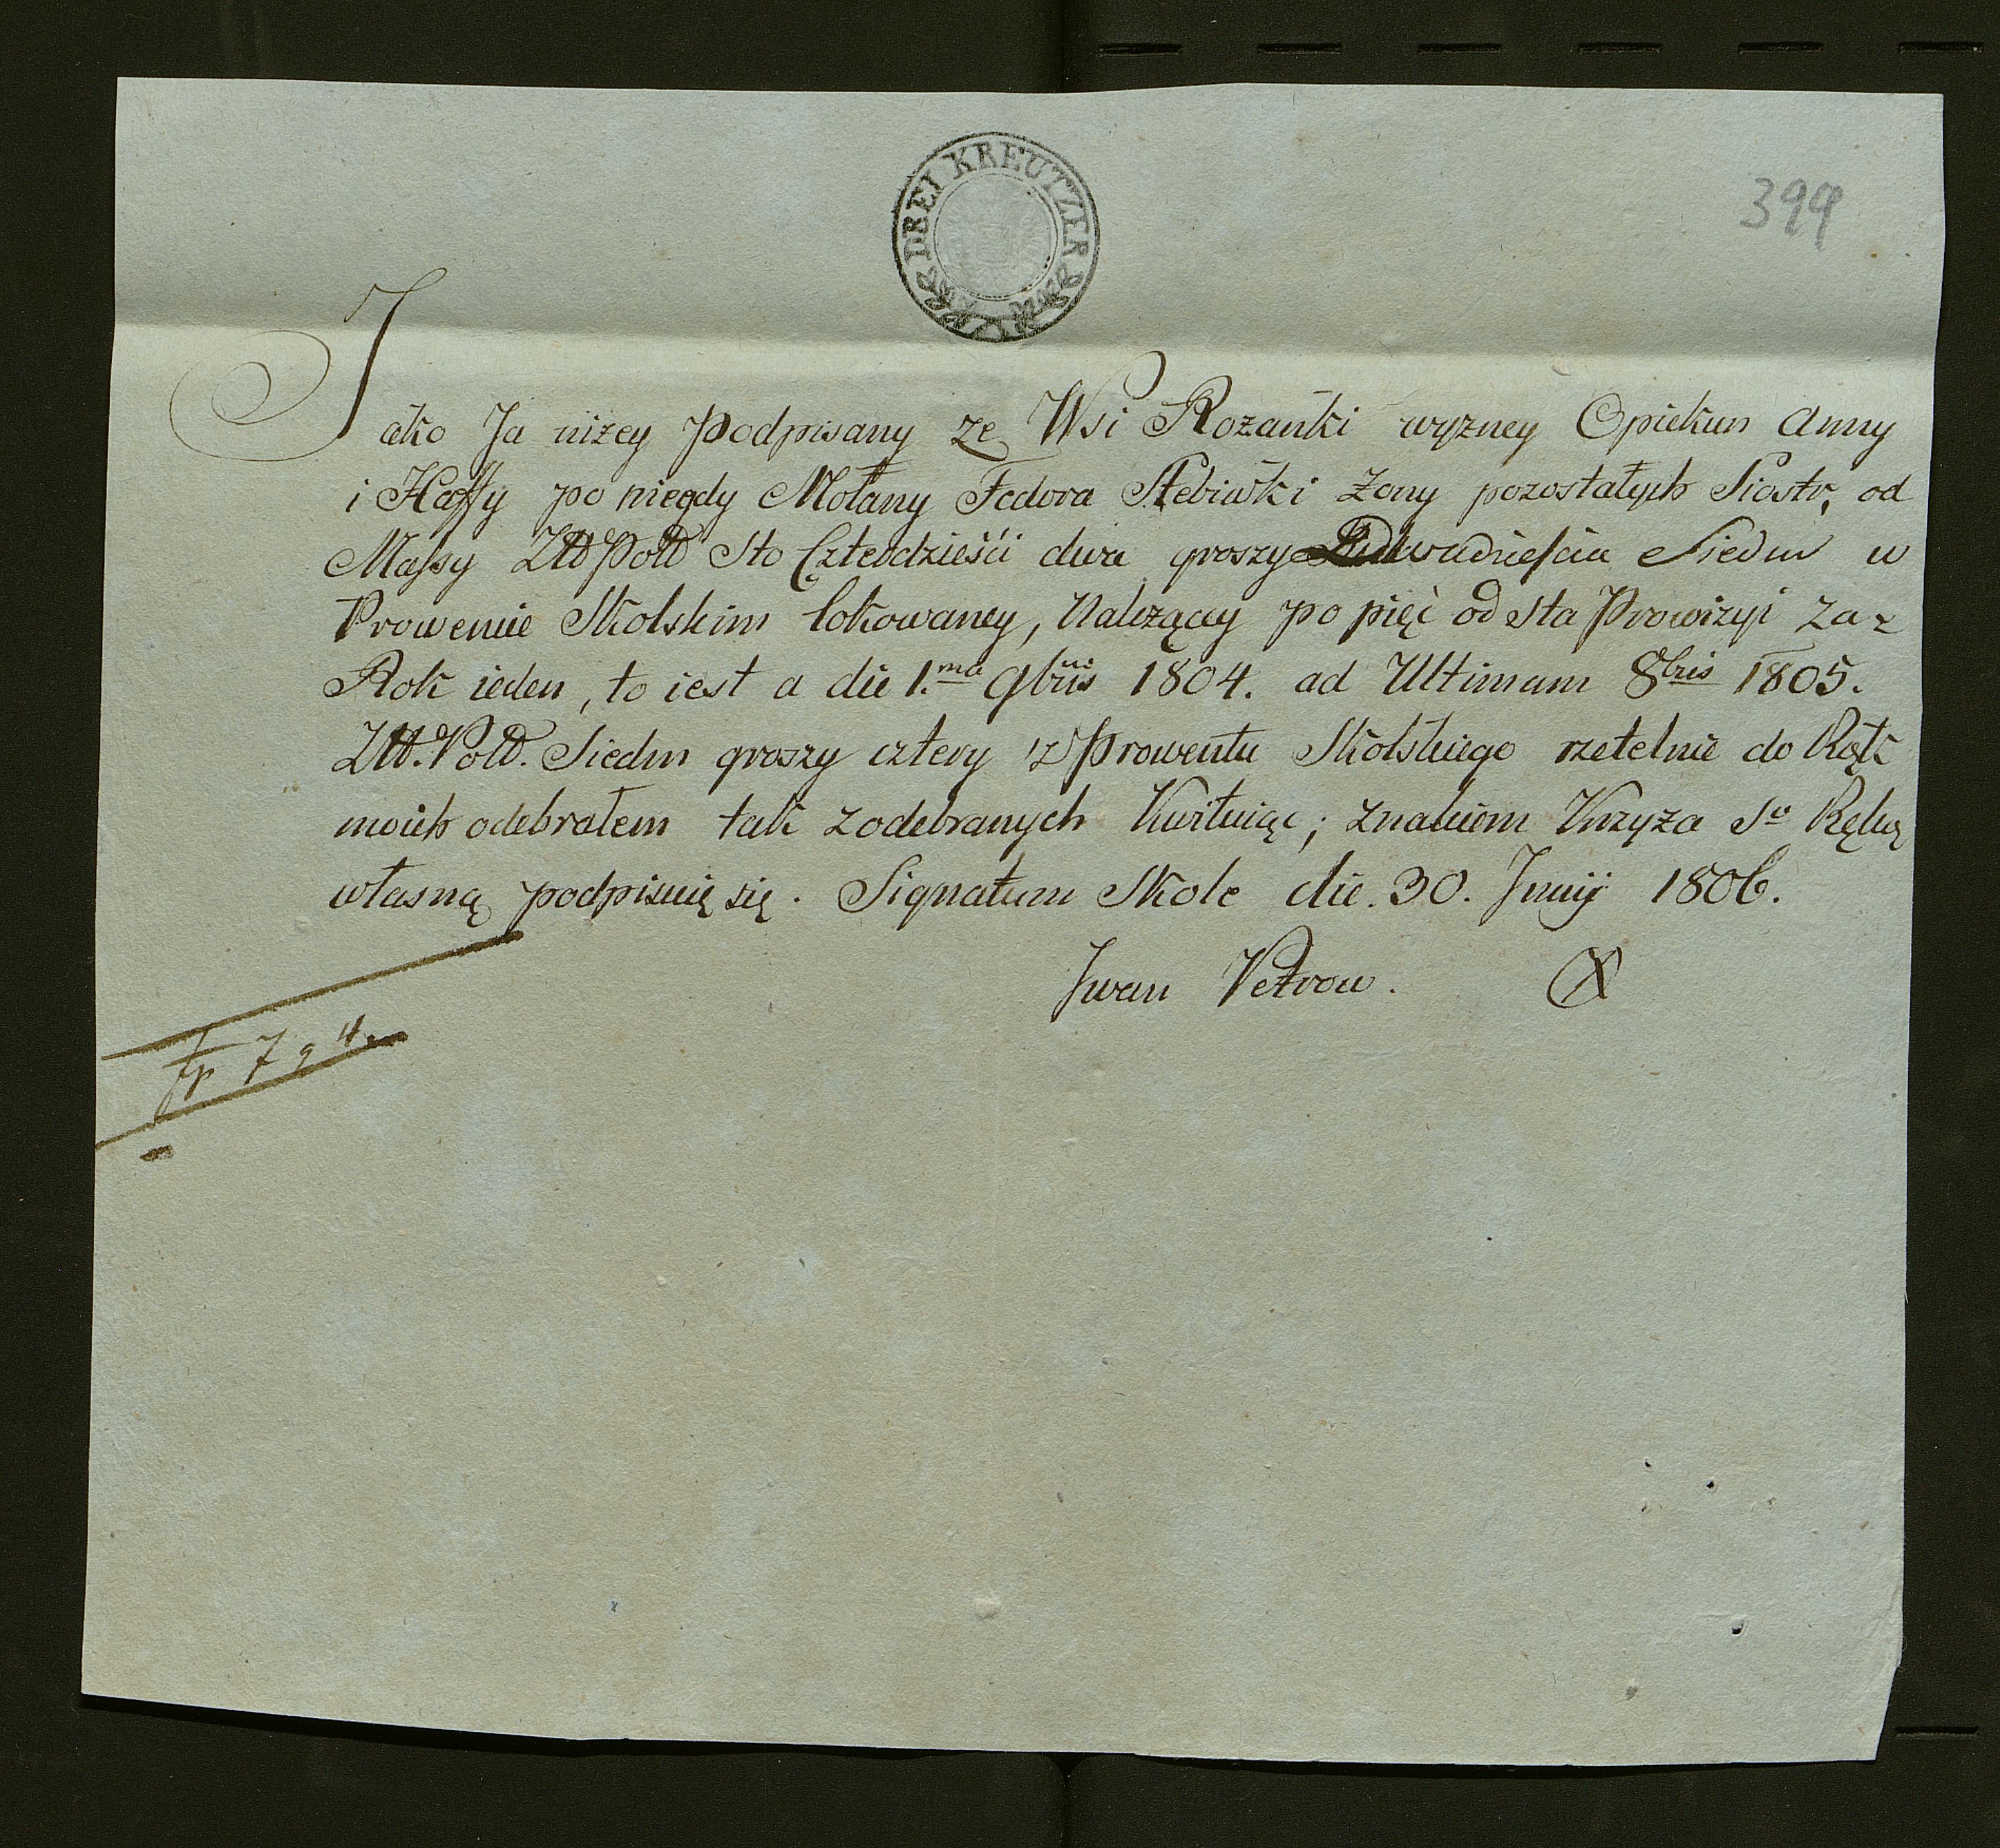 DREI KREUTZER
399
Jako Ja niżey Podpisany ze Wsi Rozańki wyzney Opiekun Anny
i Haffy po niegdy Mołany Fedora Stebiwki żony pozostałych Siostr, od
Massy Złł Poll Sto Czterdzieści dwa groszy Dwudziescia Siedm w
Prowencie Skolskim lokowaney, Nalezącey po pięć od sta Prowizyi za
Rok ieden, to iest a die 1.ma 9bris 1804. ad Ultimam 8bris 1805.
Złł. Poll. Siedm groszy cztery z Prowentu Skolskiego rzetelnie do Rąk
moich odebrałem tak zodebranych Kwituiąc; znakiem Krzyża Sgo Ręką
własną podpisuię się. Signatum Skole die. 30. Junij 1806.
Iwan Petrow. X
fp 7 g 4.